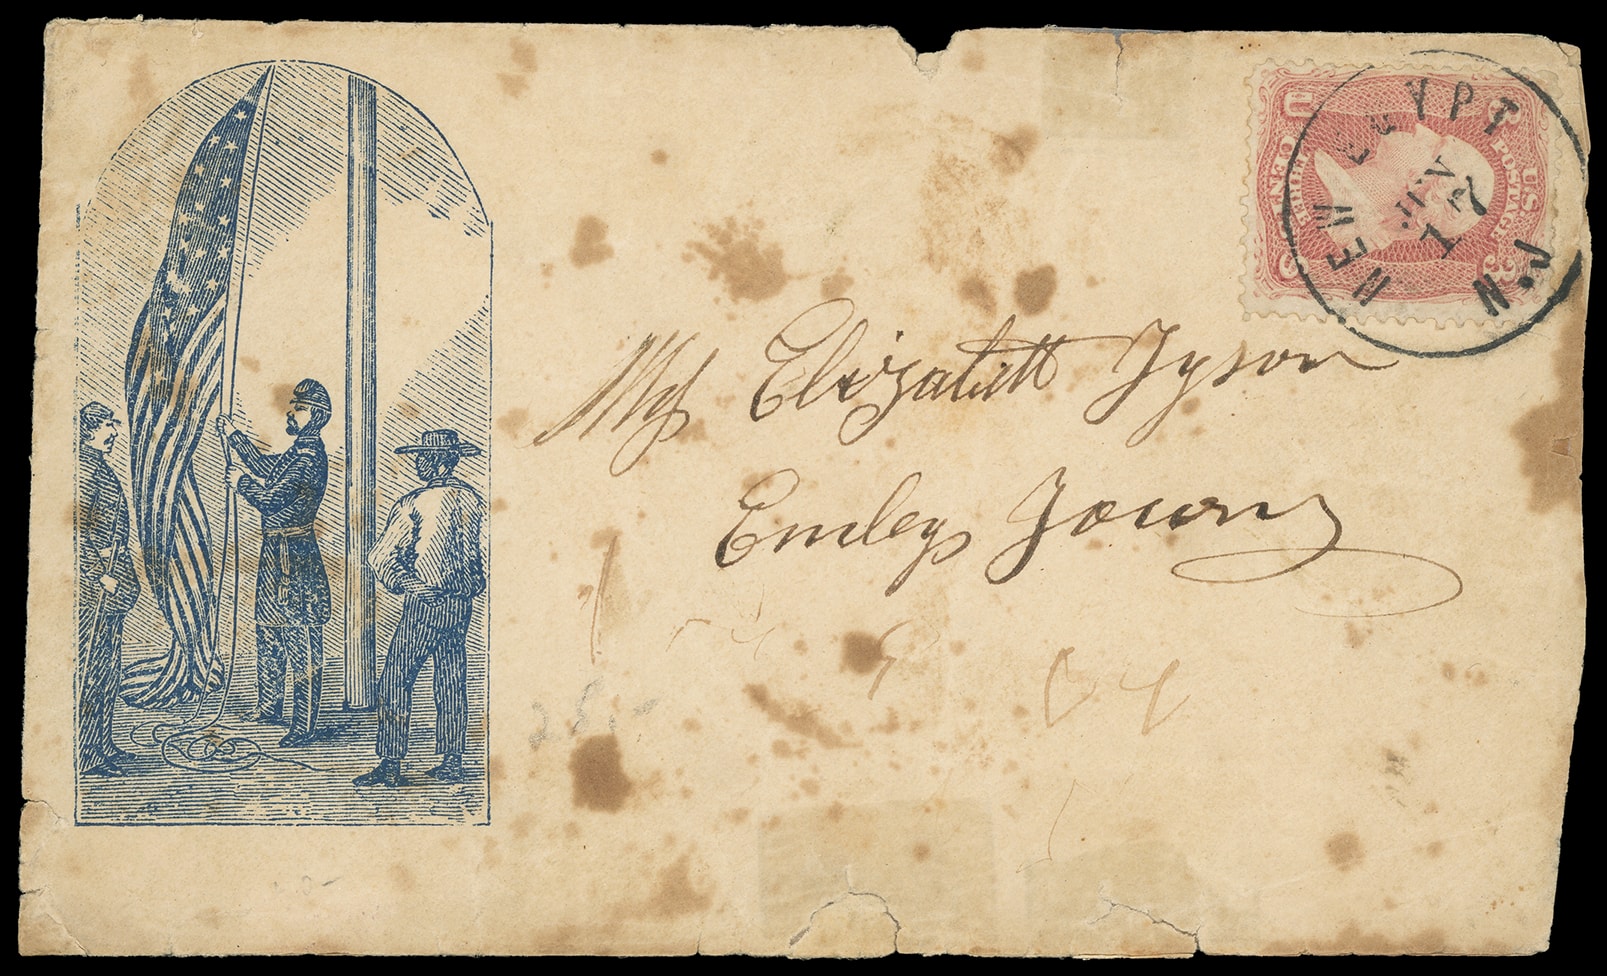 NEW EGYPT
N.J
17
U.S. POSTAGE
U
3
3
CENTS
Elizabeth Tyson
Emleys Town